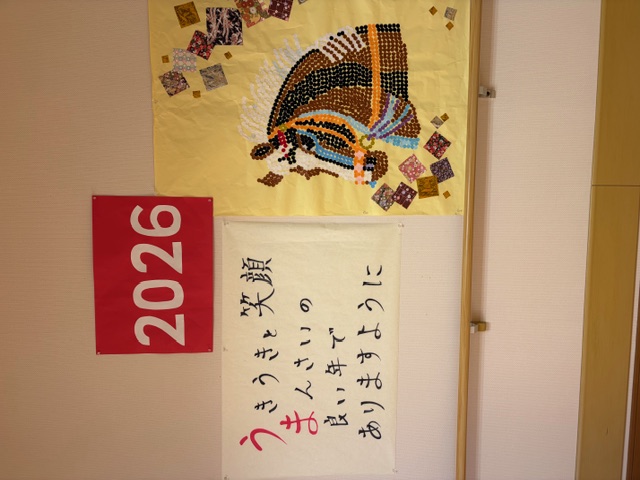 2026
うきうきと笑顔
まんさいの
良い年で
ありますように